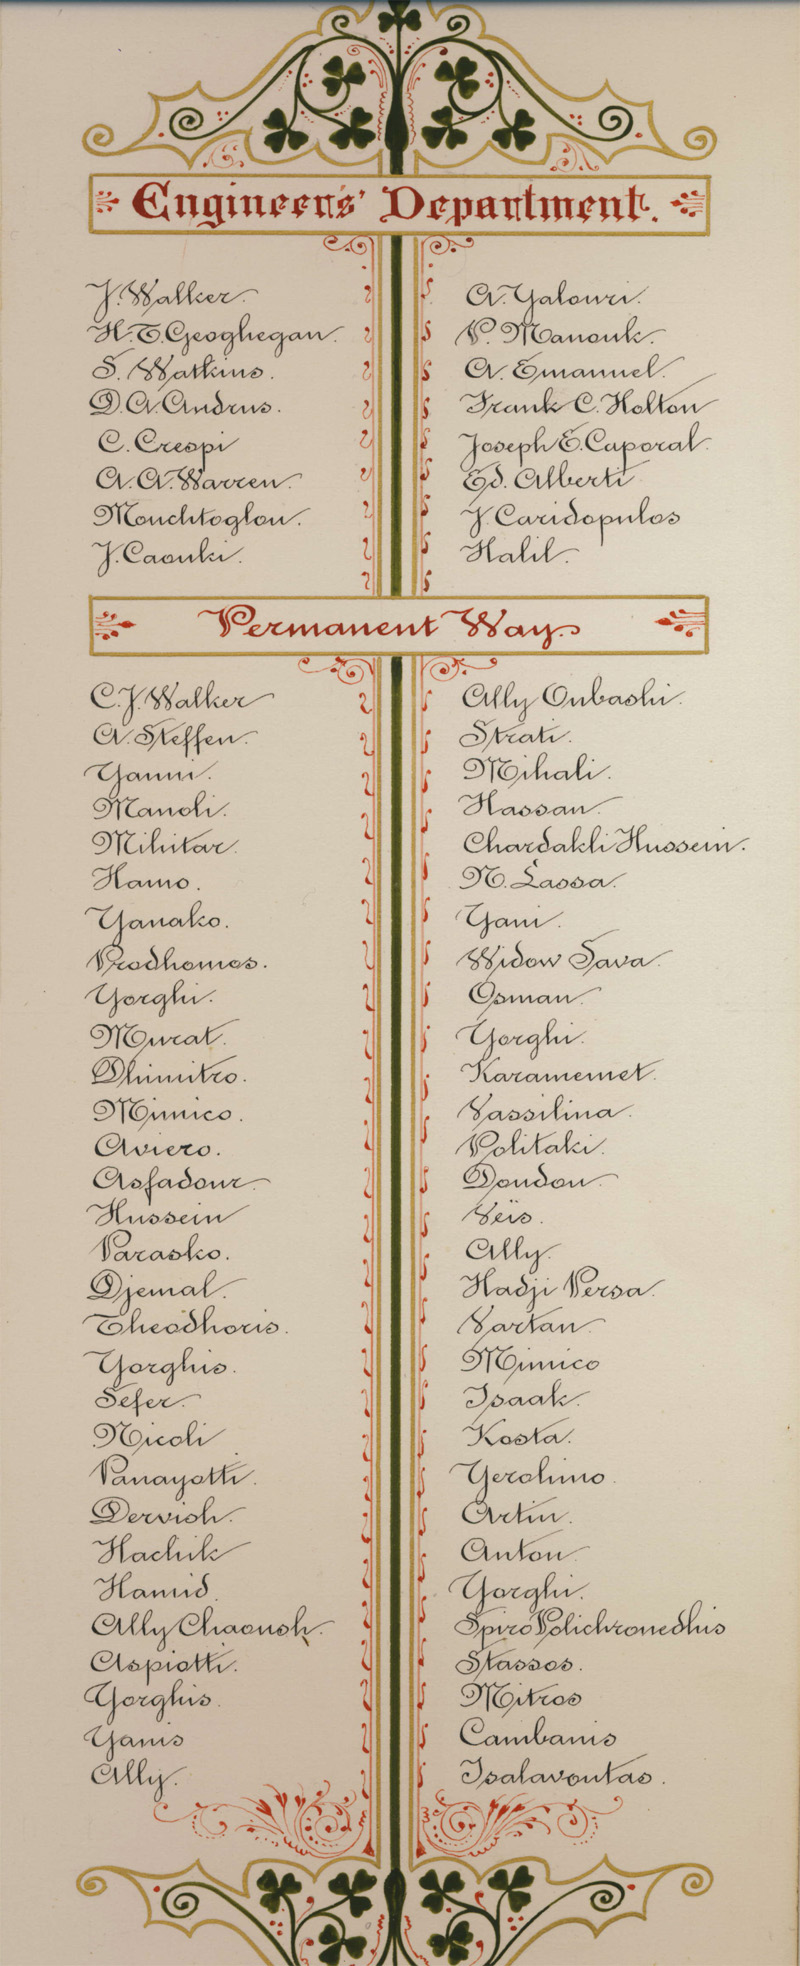 Engineers' Department.
J. Walker.
H. T. Geoghegan.
S. Watkins.
D. A. Andrus.
C. Crespi
A. A. Warren.
Mouchtoglou.
J. Caouki.
A. Yalouri.
P. Manouk.
A. Emanuel.
Frank C. Holton
Joseph E. Caporal.
Ed. Alberti
J. Caridopulos
Halil.
Permanent Way.
C. J. Walker
A. Steffen.
Yanni.
Manoli.
Mihitar.
Hamo.
Yanako.
Prodhomos.
Yorghi.
Murat.
Dhimitro.
Mimico.
Aviero.
Asfadour.
Hussein
Parasko.
Djemal.
Theodhoris.
Yorghis.
Sefer.
Nicoli
Panayotti.
Dervish.
Hachik
Hamid.
Ally Chaoush.
Aspiotti.
Yorghis.
Yanis
Ally.
Ally Onbashi.
Strati.
Mihali.
Hassan.
Chardakli Hussein.
N. Lassa.
Yani.
Widow Sava.
Osman.
Yorghi.
Karamemet.
Vassilina.
Politaki.
Doudou.
Veïs.
Ally.
Hadji Persa.
Vartan.
Mimico
Isaak.
Kosta.
Yerolimo.
Artin.
Anton.
Yorghi.
Spiro Polichronedhis
Stassos.
Mitros
Cambanis
Tsalavoutas.